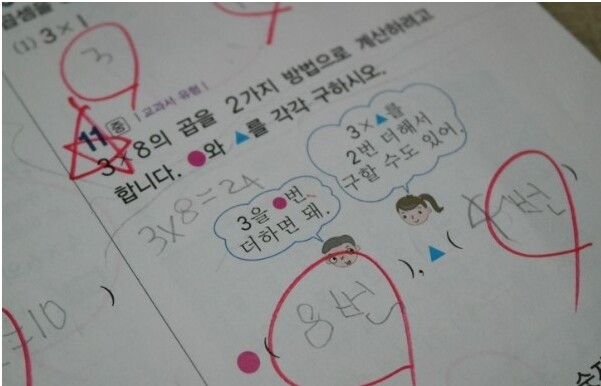 (1) 3×1
3
11 중 | 교과서 유형 |
3×8의 곱을 2가지 방법으로 계산하려고
합니다. ●와 ▲를 각각 구하시오.
3×8=24
3×▲를
2번 더해서
구할 수도 있어.
3을 ●번
더하면 돼.
●( 8번 ), ▲( 4번 )
=10 )